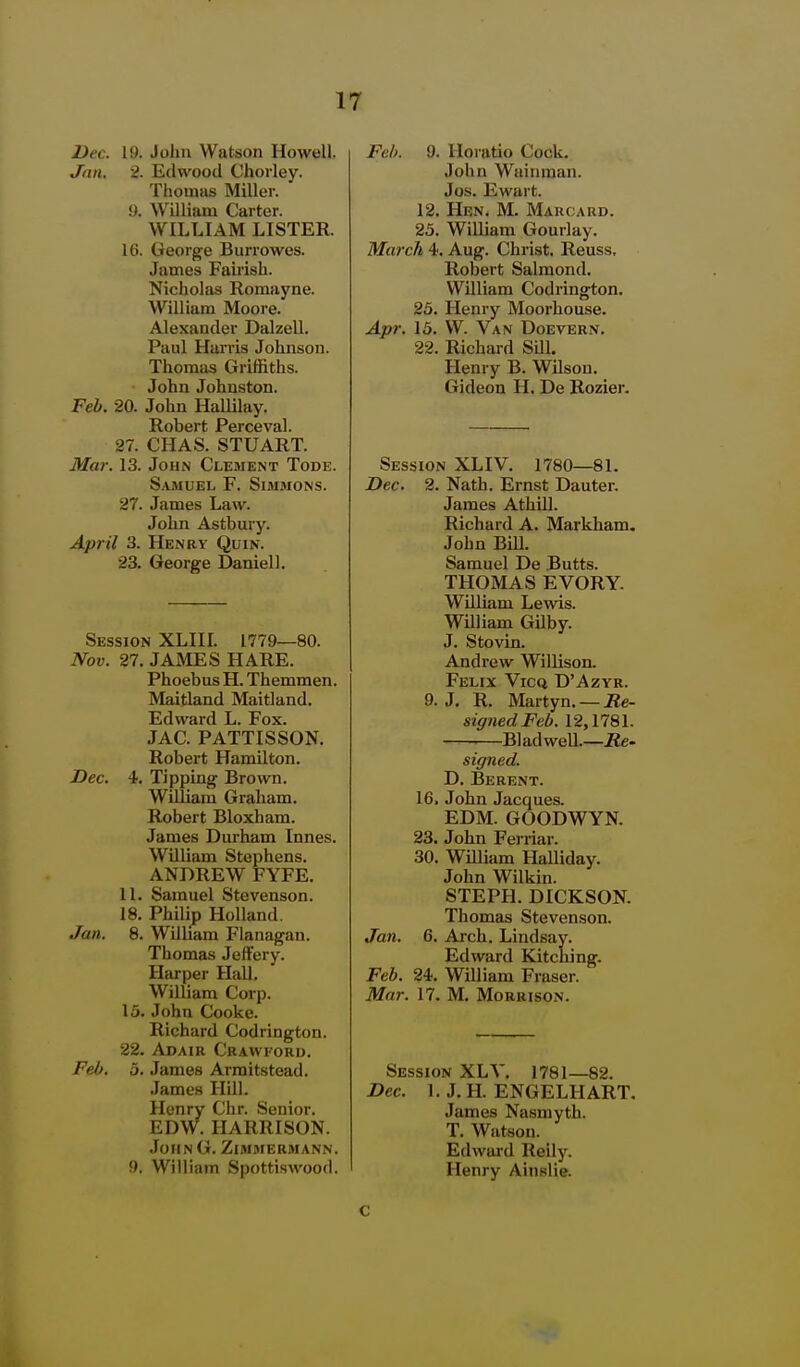 17
Dec. 19. John Watson Howell.
Jan. 2. Edwood Chorley.
Thomas Miller.
9. William Carter.
WILLIAM LISTER.
16. George Burrowes.
James Fairish.
Nicholas Romayne.
William Moore.
Alexander Dalzell.
Paul Harris Johnson.
Thomas Griffiths.
John Johnston.
Feb. 20. John Hallilay.
Robert Perceval.
27. CHAS. STUART.
Mar. 13. John Clement Tode.
Samuel F. Simmons.
27. James Law.
John Astbury.
April 3. Henry Quin.
23. George Daniell.
Session XLIII. 1779—80.
Nov. 27. JAMES HARE.
Phoebus H. Themmen.
Maitland Maitland.
Edward L. Fox.
JAC. PATTISSON.
Robert Hamilton.
Dec. 4. Tipping Brown.
William Graham.
Robert Bloxham.
James Durham Innes.
William Stephens.
ANDREW FYFE.
11. Samuel Stevenson.
18. Philip Holland.
Jan. 8. William Flanagan.
Thomas Jeffery.
Harper Hall.
William Corp.
15. John Cooke.
Richard Codrington.
22. Adair Crawford.
Feb. 5. James Armitstead.
James Hill.
Henry Chr. Senior.
EDW. HARRISON.
John G. Zimmermann.
9. William Spottiswood.
Feb. 9. Horatio Cock.
John Wainman.
Jos. Ewart.
12. Hen. M. Marcard.
25. William Gourlay.
March 4. Aug. Christ. Reuss.
Robert Salmond.
William Codrington.
25. Henry Moorhouse.
Apr. 15. W. Van Doevern.
22. Richard Sill.
Henry B. Wilson.
Gideon H. De Rozier.
Session XLIV. 1780—81.
Dec. 2. Nath. Ernst Dauter.
James Athill.
Richard A. Markham.
John Bill.
Samuel De Butts.
THOMAS EVORY.
William Lewis.
William Gilby.
J. Stovin.
Andrew Willison.
Felix Vicq D'Azyr.
9. J. R. Martyn.—Re-
signed Feb. 12, 1781.
——Bladwell.—Re-
signed.
D. Berent.
16. John Jacques.
EDM. GOODWYN.
23. John Ferriar.
30. William Halliday.
John Wilkin.
STEPH. DICKSON.
Thomas Stevenson.
Jan. 6. Arch. Lindsay.
Edward Kitching.
Feb. 24. William Fraser.
Mar. 17. M. Morrison.
Session XLV. 1781—82.
Dec. 1. J. H. ENGELHART.
James Nasmyth.
T. Watson.
Edward Reily.
Henry Ainslie.
C